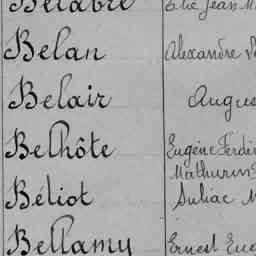 Belabre Elie Jean M
Belan Alexandre
Belair Augus
Belhôte Eugène Ferdin
Mathurin
Béliot Suliac M
Bellamy Ernest Eug